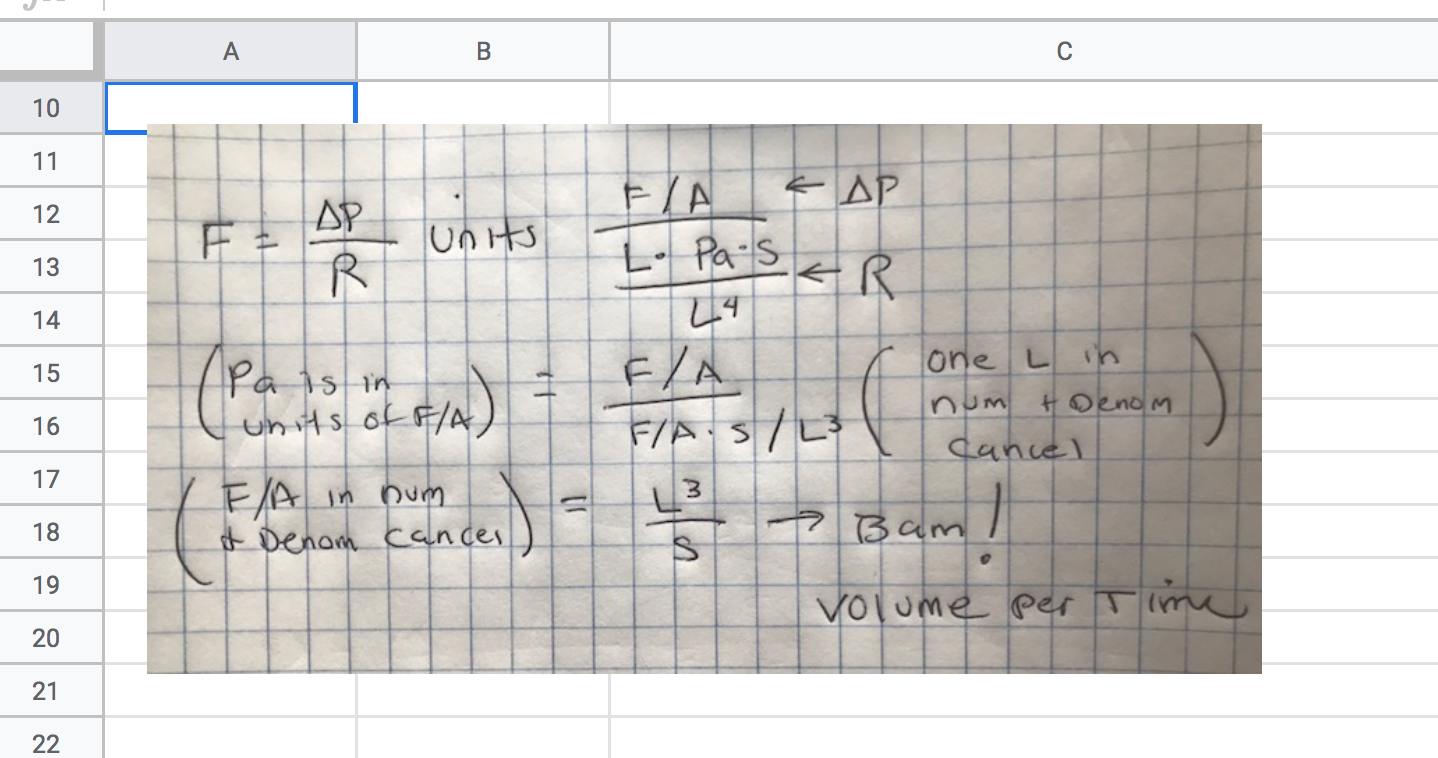 A B C
10
11
12
13
14
15
16
17
18
19
20
21
22
F = ΔP / R units F/A ← ΔP
L · Pa · S / L⁴ ← R
(Pa is in units of F/A) = F/A / F/A · S / L³ (one L in num + Denom cancel)
(F/A in num + Denom cancel) = L³ / S → Bam!
Volume per Time